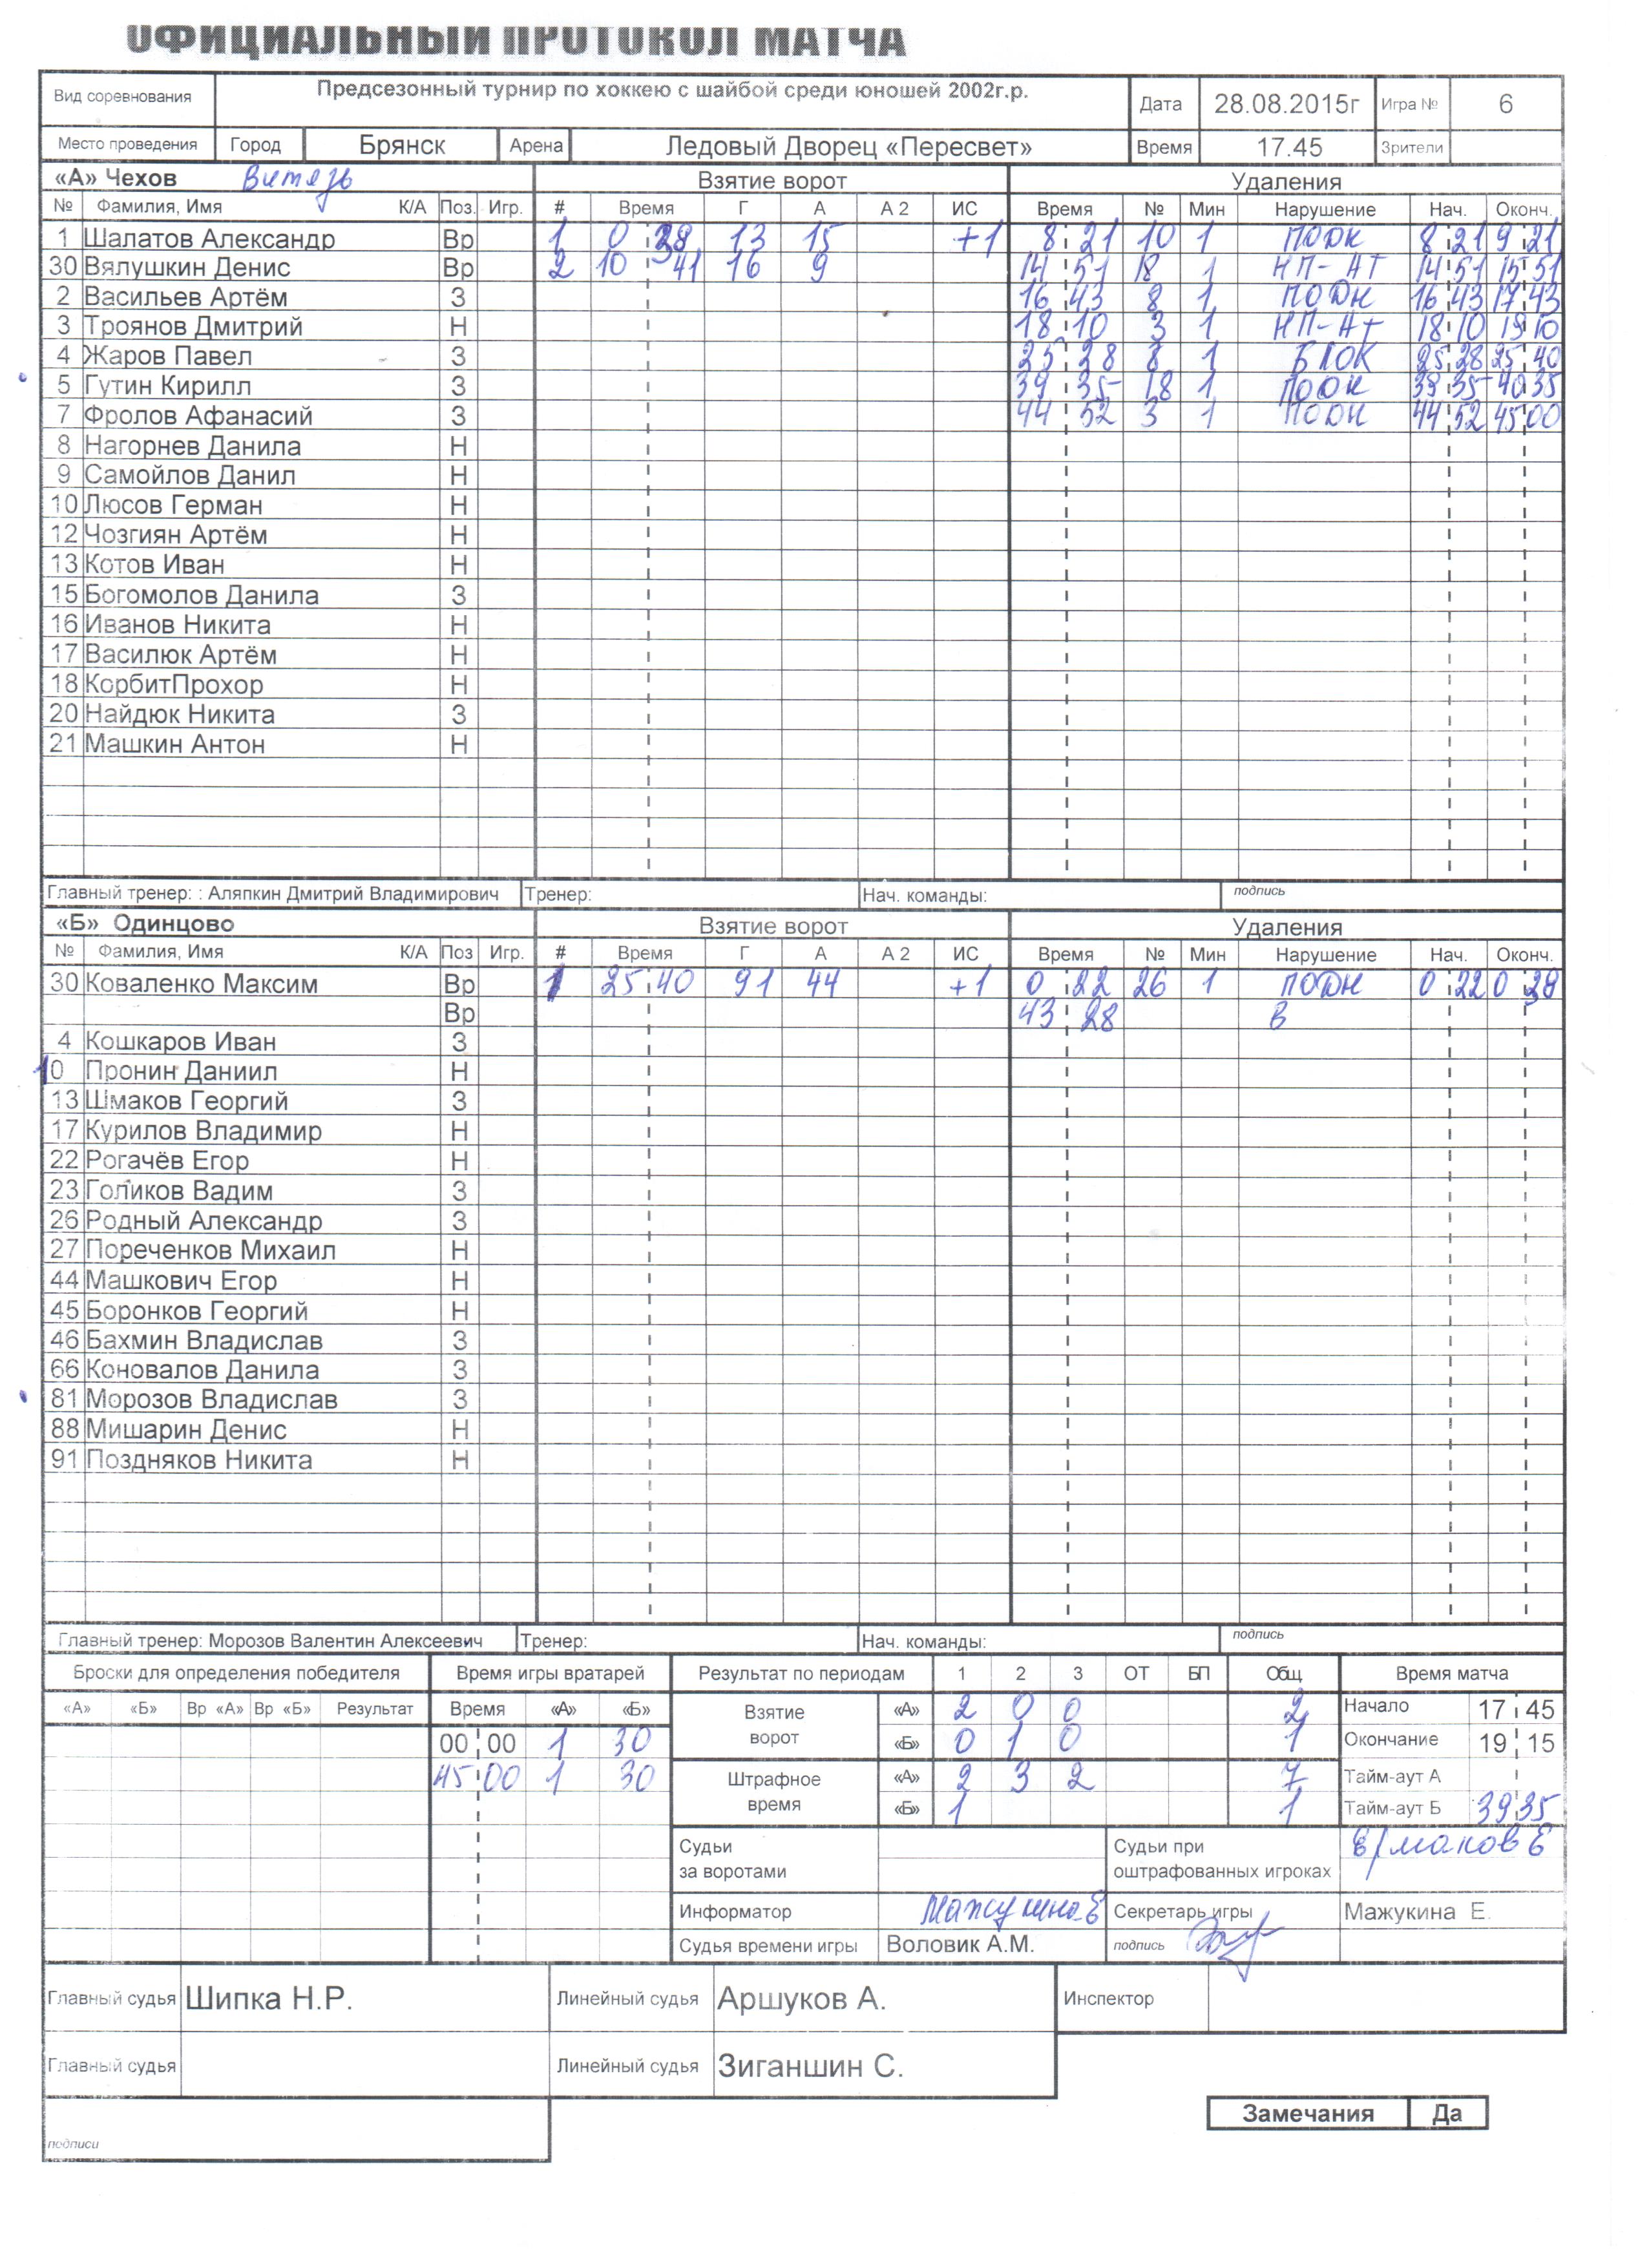 ОФИЦИАЛЬНЫЙ ПРОТОКОЛ МАТЧА
Вид соревнования Предсезонный турнир по хоккею с шайбой среди юношей 2002г.р. Дата 28.08.2015г Игра № 6
Место проведения Город Брянск Арена Ледовый Дворец «Пересвет» Время 17.45 Зрители
«А» Чехов Витязь Взятие ворот Удаления
№ Фамилия, Имя К/А Поз. Игр. # Время Г А А 2 ИС Время № Мин Нарушение Нач. Оконч.
1 Шалатов Александр Вр 1 0 39 13 15 +1 8 21 10 1 ПОДН 8 21 9 21
30 Вялушкин Денис Вр 2 10 41 16 9 14 51 18 1 НП-АТ 14 51 15 51
2 Васильев Артём З 16 43 8 1 ПОДН 16 43 17 43
3 Троянов Дмитрий Н 18 10 3 1 НП-АТ 18 10 19 10
4 Жаров Павел З 25 28 8 1 БЛОК 25 28 25 40
5 Гутин Кирилл З 39 35 18 1 ПОДН 39 35 40 35
7 Фролов Афанасий З 44 52 3 1 ПОДН 44 52 45 00
8 Нагорнев Данила Н
9 Самойлов Данил Н
10 Люсов Герман Н
12 Чозгиян Артём Н
13 Котов Иван Н
15 Богомолов Данила З
16 Иванов Никита Н
17 Василюк Артём Н
18 КорбитПрохор Н
20 Найдюк Никита З
21 Машкин Антон Н
Главный тренер: : Аляпкин Дмитрий Владимирович Тренер: Нач. команды: подпись
«Б» Одинцово Взятие ворот Удаления
№ Фамилия, Имя К/А Поз Игр. # Время Г А А 2 ИС Время № Мин Нарушение Нач. Оконч.
30 Коваленко Максим Вр 1 25 40 91 44 +1 0 22 26 1 ПОДН 0 22 0 39
Вр 43 28 В
4 Кошкаров Иван З
10 Пронин Даниил Н
13 Шмаков Георгий З
17 Курилов Владимир Н
22 Рогачёв Егор Н
23 Голиков Вадим З
26 Родный Александр З
27 Пореченков Михаил Н
44 Машкович Егор Н
45 Боронков Георгий Н
46 Бахмин Владислав З
66 Коновалов Данила З
81 Морозов Владислав З
88 Мишарин Денис Н
91 Поздняков Никита Н
Главный тренер: Морозов Валентин Алексеевич Тренер: Нач. команды: подпись
Броски для определения победителя Время игры вратарей Результат по периодам 1 2 3 ОТ БП Общ Время матча
«А» «Б» Вр «А» Вр «Б» Результат Время «А» «Б» Взятие ворот «А» 2 0 0 2 Начало 17 45
00 00 1 30 «Б» 0 1 0 1 Окончание 19 15
45 00 1 30 Штрафное время «А» 2 3 2 7 Тайм-аут А
«Б» 1 1 Тайм-аут Б 39 35
Судьи за воротами Судьи при оштрафованных игроках Ермаков Е
Информатор Мажукина Е Секретарь игры Мажукина Е.
Судья времени игры Воловик А.М. подпись
Главный судья Шипка Н.Р. Линейный судья Аршуков А. Инспектор
Главный судья Линейный судья Зиганшин С.
Замечания Да
подписи